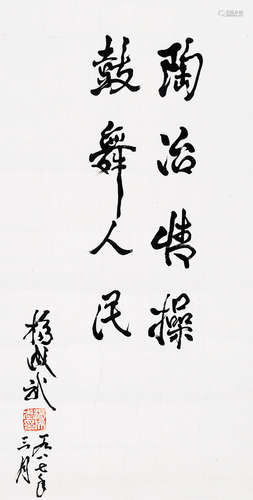 陶冶情操
鼓舞人民
杨成武
一九八七年
三月